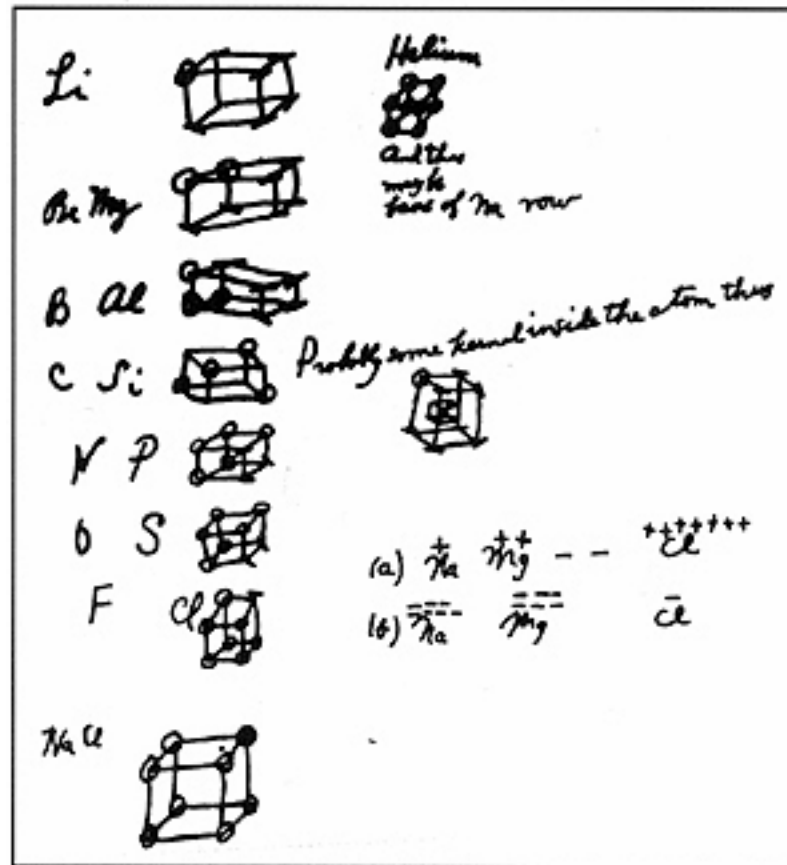 Li
Helium
And this
may be
of Na row
Be Mg
B Al
Probably some kernel inside the atom thus
C Si
N P
O S
(a) Na + Mg ++ - - Cl +++++++
F Cl
(b) Na Mg Cl -
Na Cl